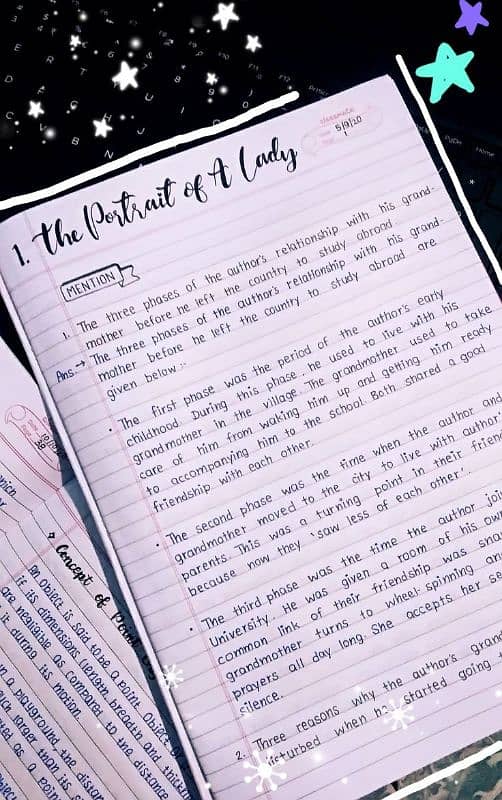 classmate
5/9/20
1
1. The Portrait of A Lady
MENTION
1. The three phases of the author's relationship with his grand-
mother before he left the country to study abroad
Ans → The three phases of the author's relationship with his grand-
mother before he left the country to study abroad are
given below :-
• The first phase was the period of the author's early
childhood. During this phase, he used to live with his
grandmother in the village. The grandmother used to take
care of him from waking him up and getting him ready
to accompanying him to the school. Both shared a good
friendship with each other.
• The second phase was the time when the author and
grandmother moved to the city to live with author
parents. This was a turning point in their frien
because now they 'saw less of each other'.
• The third phase was the time the author joi
University. He was given a room of his own
common link of their friendship was snap
grandmother turns to wheel-spinning an
prayers all day long. She accepts her se
silence.
2. Three reasons why the author's gra
disturbed when he started going t
Concept of
An object is said to be a point object
if its dimensions (length, breadth and thick
are negligible as compared to the distance
it during its motion.
in a playground, the distan
much larger than its